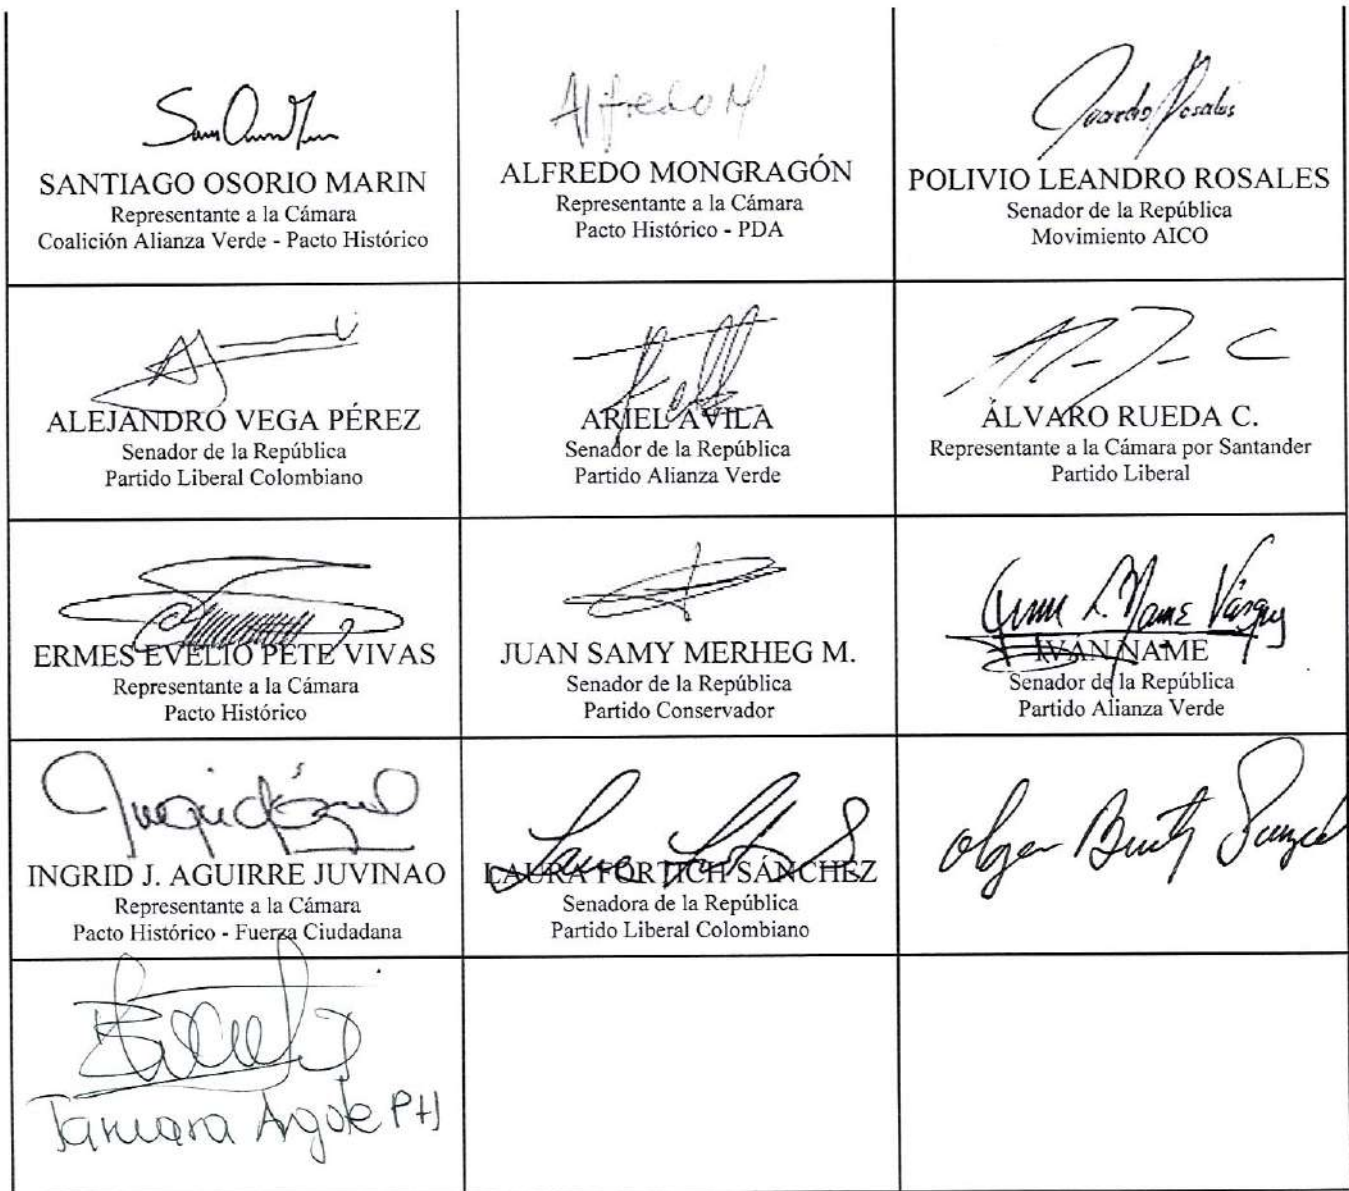 Alfredo M
SANTIAGO OSORIO MARIN
Representante a la Cámara
Coalición Alianza Verde - Pacto Histórico
ALFREDO MONGRAGÓN
Representante a la Cámara
Pacto Histórico - PDA
POLIVIO LEANDRO ROSALES
Senador de la República
Movimiento AICO
ALEJANDRO VEGA PÉREZ
Senador de la República
Partido Liberal Colombiano
ARIEL AVILA
Senador de la República
Partido Alianza Verde
ÁLVARO RUEDA C.
Representante a la Cámara por Santander
Partido Liberal
ERMES EVELIO PETE VIVAS
Representante a la Cámara
Pacto Histórico
JUAN SAMY MERHEG M.
Senador de la República
Partido Conservador
IVÁN NAME
Senador de la República
Partido Alianza Verde
INGRID J. AGUIRRE JUVINAO
Representante a la Cámara
Pacto Histórico - Fuerza Ciudadana
LAURA FORTICH SÁNCHEZ
Senadora de la República
Partido Liberal Colombiano
Tamara Argote PH